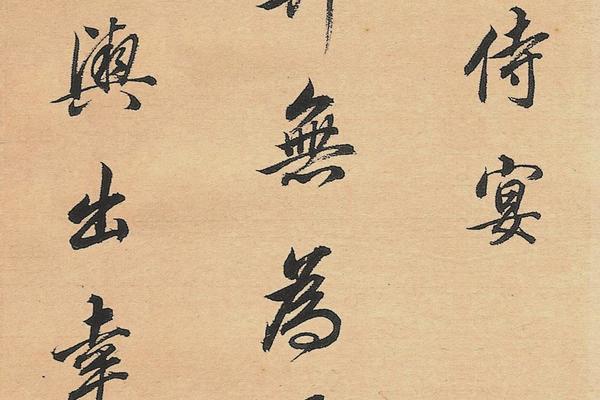 侍宴
無為
輿出幸